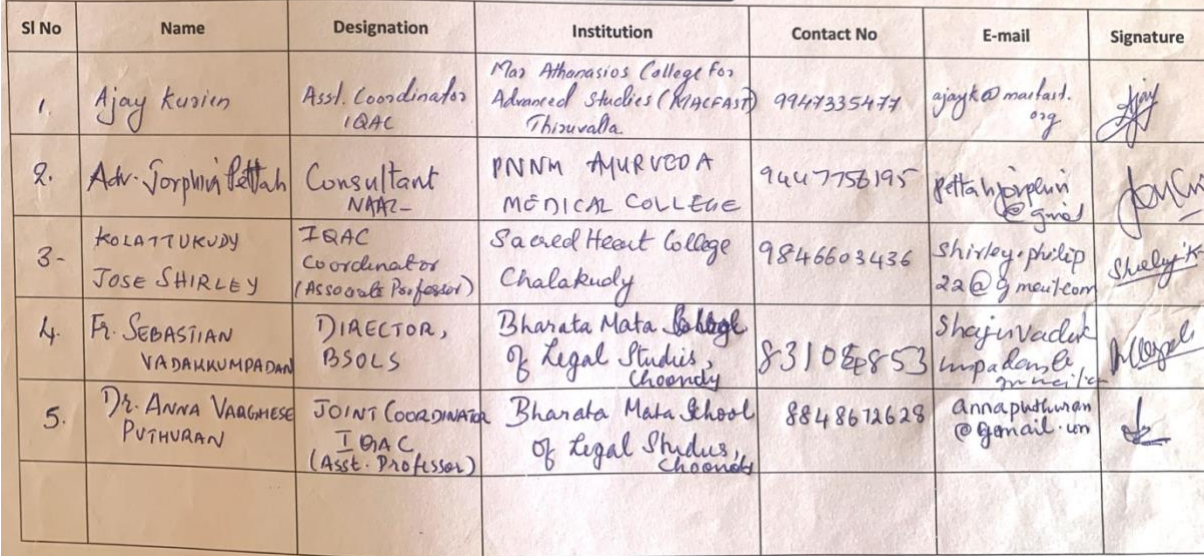 Sl No Name Designation Institution Contact No E-mail Signature
1. Ajay Kurien Asst. Coordinator IQAC Mar Athanasios College For Advanced Studies (MACFAST) Thiruvalla 9947335477 ajayk@macfast.org Ajay
2. Adv. Pettah Consultant PNNM AYURVEDA MEDICAL COLLEGE 9447756195
3- KOLATTUKUDY JOSE SHIRLEY IQAC Coordinator (Associate Professor) Sacred Heart College Chalakudy 9846603436 shirley.philip22@gmail.com
4. Fr. SEBASTIAN VADAKKUMPADAN DIRECTOR, BSOLS Bharata Mata of Legal Studies, Choondy
5. Dr. ANNA VARGHESE PUTHURAN JOINT COORDINATOR IQAC (Asst. Professor) Bharata Mata School of Legal Studies, Choondy 8848672628 annaputhuran@gmail.com